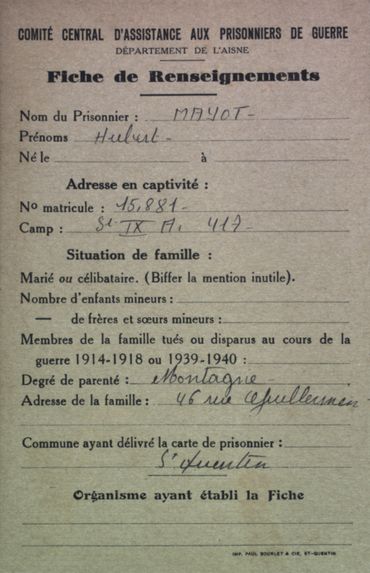 COMITÉ CENTRAL D'ASSISTANCE AUX PRISONNIERS DE GUERRE
DÉPARTEMENT DE L'AISNE
Fiche de Renseignements
Nom du Prisonnier : MAYOT -
Prénoms Hubert -
Né le à
Adresse en captivité :
No matricule : 15.881 -
Camp : St IX A. 417 -
Situation de famille :
Marié ou célibataire. (Biffer la mention inutile).
Nombre d'enfants mineurs :
— de frères et sœurs mineurs :
Membres de la famille tués ou disparus au cours de la
guerre 1914-1918 ou 1939-1940 :
Degré de parenté : Montagne -
Adresse de la famille : 46 rue
Commune ayant délivré la carte de prisonnier :
St Quentin
Organisme ayant établi la Fiche
IMP. PAUL BOURLET & CIE, ST-QUENTIN